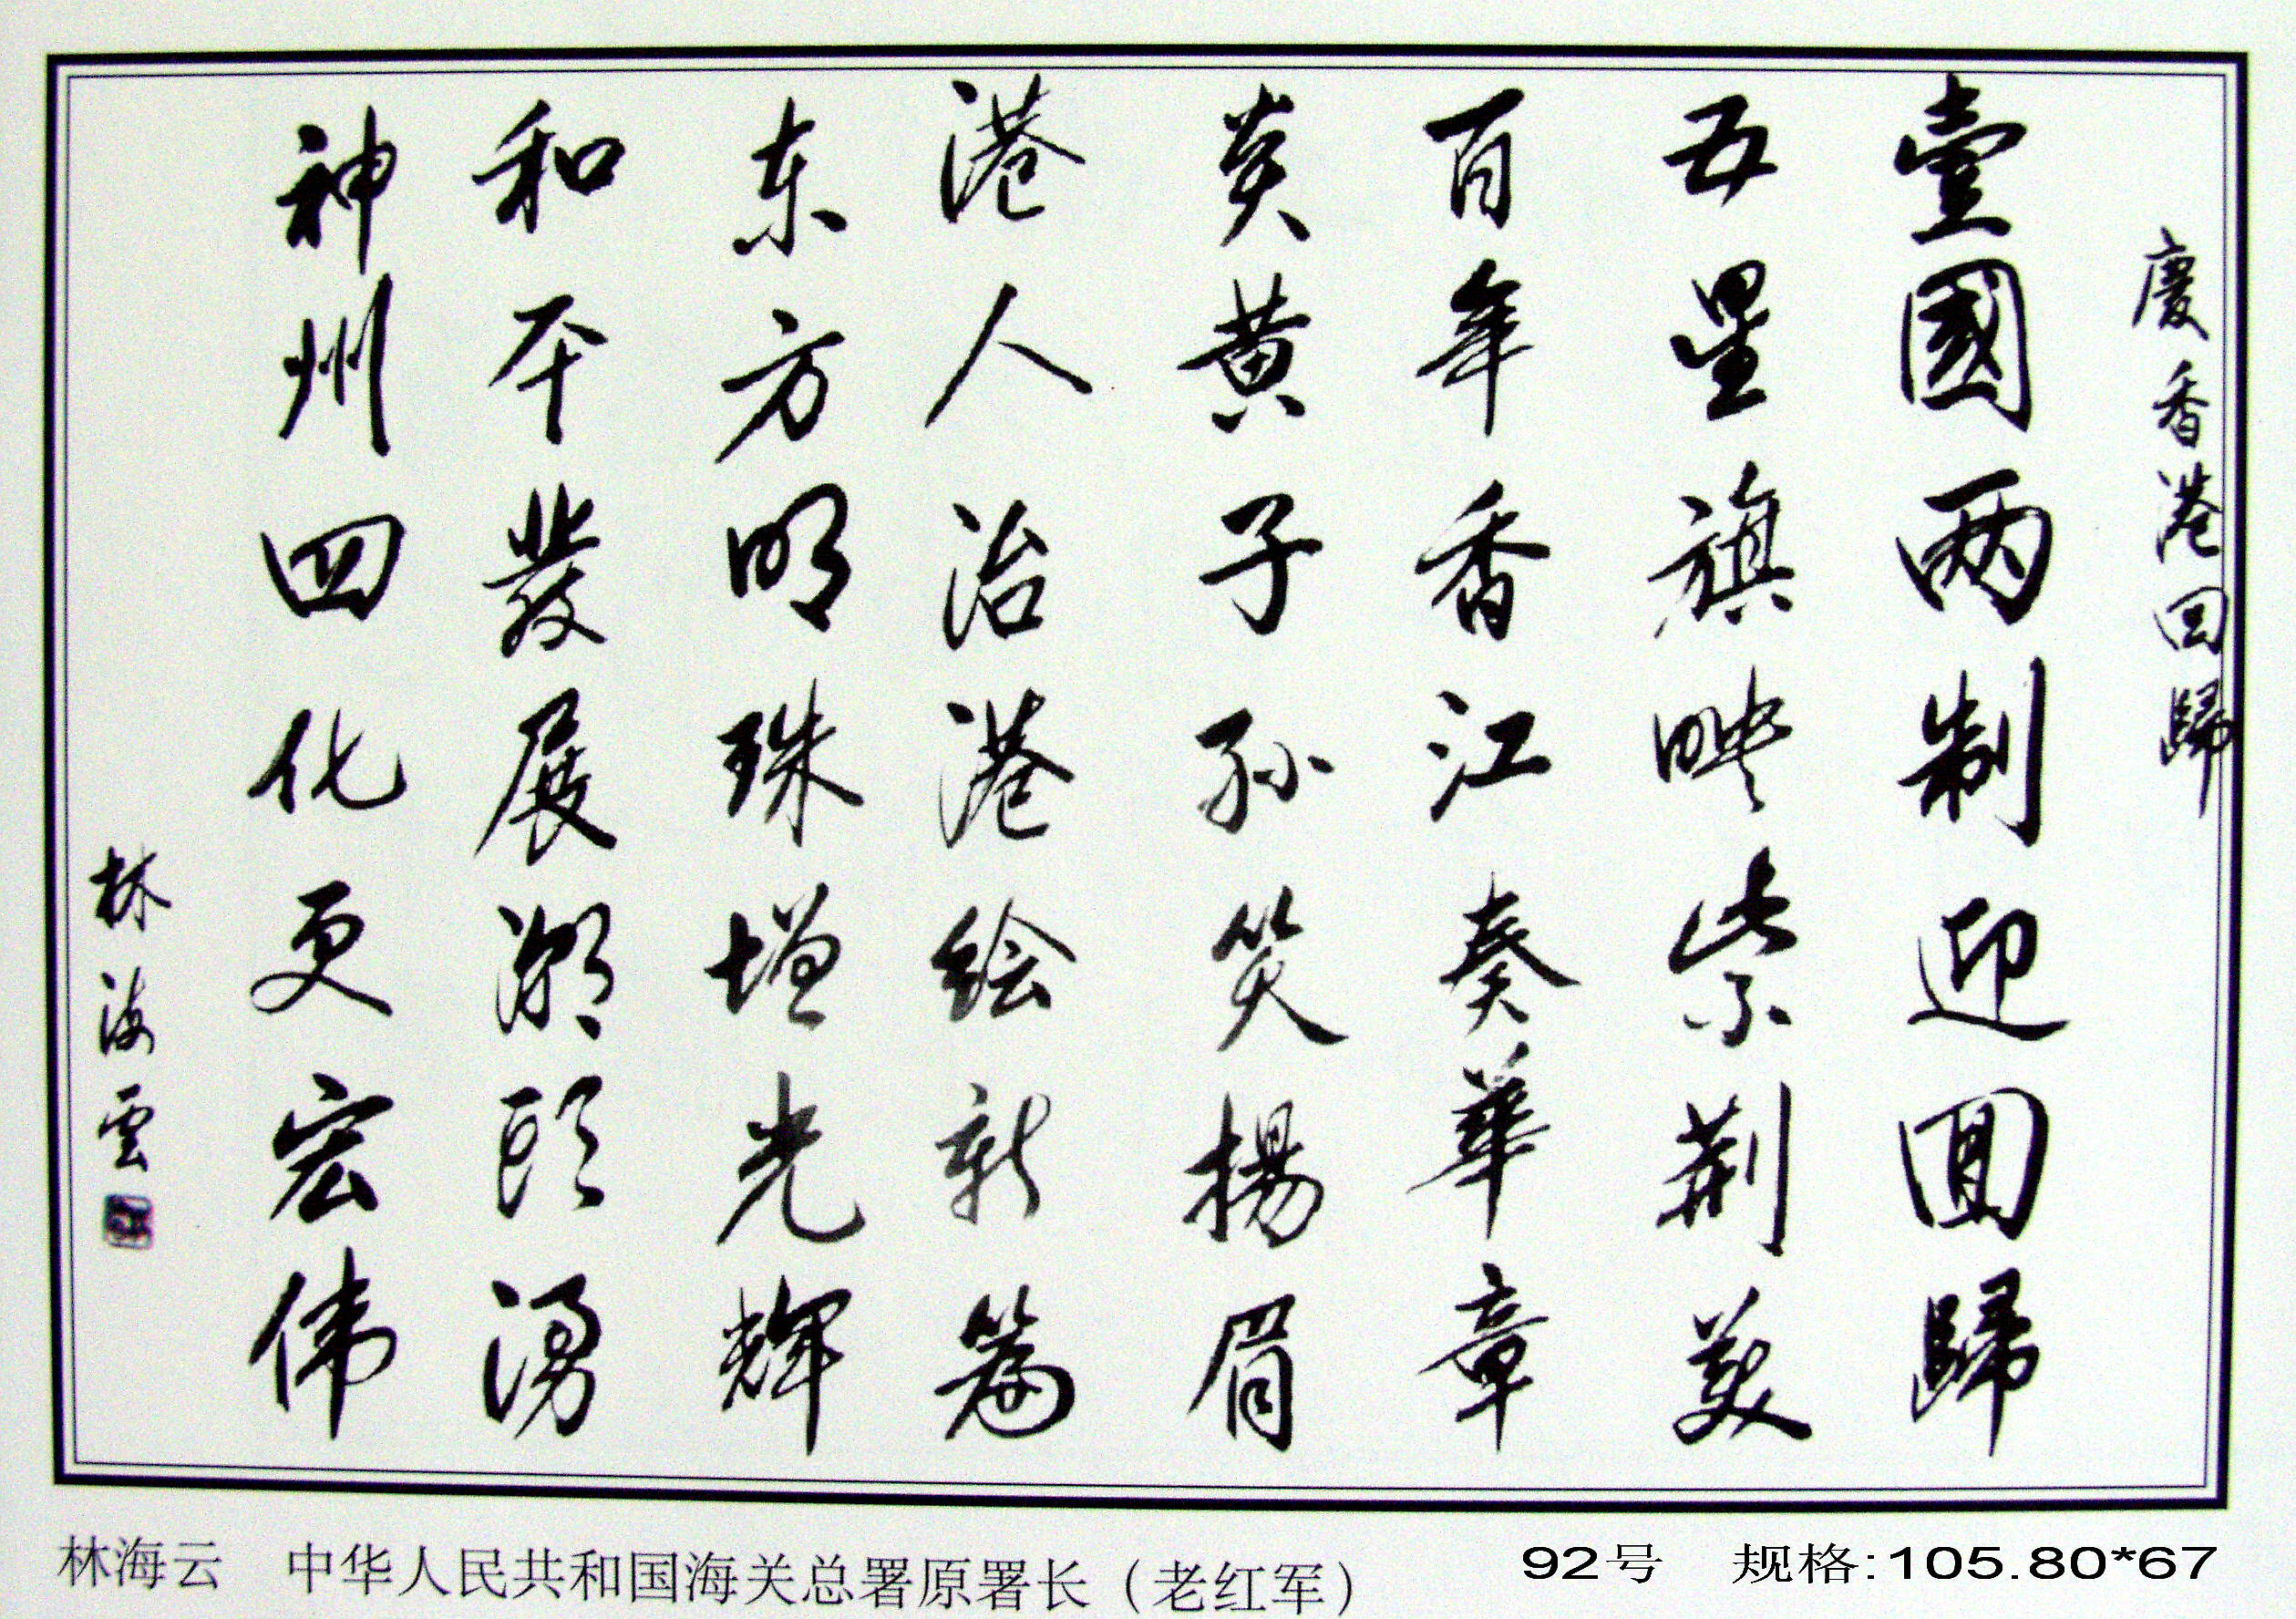 慶香港回歸
壹國两制迎回歸
五星旗映紫荆美
百年香江奏華章
炎黄子孙笑揚眉
港人治港绘新篇
东方明珠增光辉
和平發展潮头湧
神州四化更宏伟
林海雲
林海云 中华人民共和国海关总署原署长（老红军） 92号 规格:105.80*67